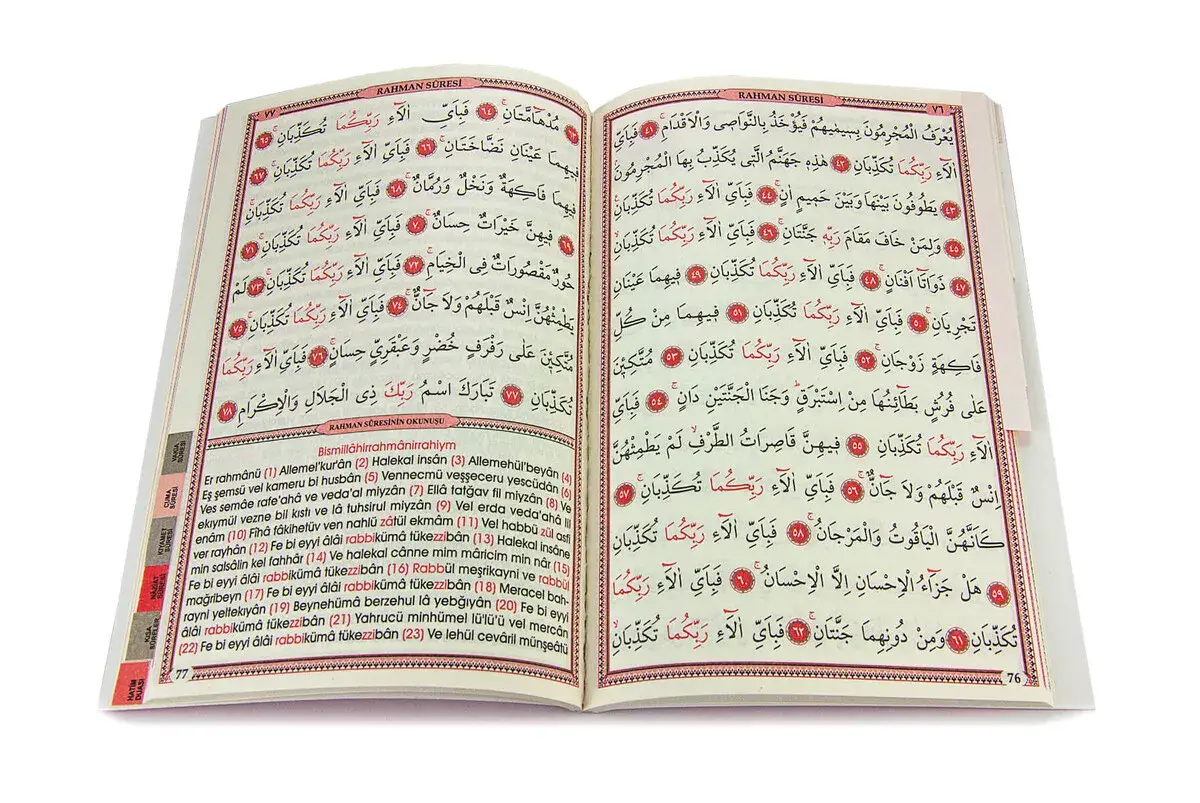 RAHMAN SÛRESİ
٧٦
يُعْرَفُ الْمُجْرِمُونَ بِسِيمٰيهُمْ فَيُؤْخَذُ بِالنَّوَاصٖى وَالْاَقْدَامِۚ ﴿٤١﴾ فَبِاَيِّ
اٰلَٓاءِ رَبِّكُمَا تُكَذِّبَانِ ﴿٤٢﴾ هٰذِهٖ جَهَنَّمُ الَّتٖى يُكَذِّبُ بِهَا الْمُجْرِمُونَۢ
﴿٤٣﴾ يَطُوفُونَ بَيْنَهَا وَبَيْنَ حَمٖيمٍ اٰنٍۚ ﴿٤٤﴾ فَبِاَيِّ اٰلَٓاءِ رَبِّكُمَا تُكَذِّبَانِ۟
﴿٤٥﴾ وَلِمَنْ خَافَ مَقَامَ رَبِّهٖ جَنَّتَانِۚ ﴿٤٦﴾ فَبِاَيِّ اٰلَٓاءِ رَبِّكُمَا تُكَذِّبَانِۙ
﴿٤٧﴾ ذَوَاتَٓا اَفْنَانٍۚ ﴿٤٨﴾ فَبِاَيِّ اٰلَٓاءِ رَبِّكُمَا تُكَذِّبَانِ ﴿٤٩﴾ فٖيهِمَا عَيْنَانِ
تَجْرِيَانِۚ ﴿٥٠﴾ فَبِاَيِّ اٰلَٓاءِ رَبِّكُمَا تُكَذِّبَانِ ﴿٥١﴾ فٖيهِمَا مِنْ كُلِّ
فَاكِهَةٍ زَوْجَانِۚ ﴿٥٢﴾ فَبِاَيِّ اٰلَٓاءِ رَبِّكُمَا تُكَذِّبَانِ ﴿٥٣﴾ مُتَّكِـٖٔينَ
عَلٰى فُرُشٍ بَطَٓائِنُهَا مِنْ اِسْتَبْرَقٍۜ وَجَنَا الْجَنَّتَيْنِ دَانٍۚ ﴿٥٤﴾ فَبِاَيِّ
اٰلَٓاءِ رَبِّكُمَا تُكَذِّبَانِ ﴿٥٥﴾ فٖيهِنَّ قَاصِرَاتُ الطَّرْفِۙ لَمْ يَطْمِثْهُنَّ
اِنْسٌ قَبْلَهُمْ وَلَا جَٓانٌّۚ ﴿٥٦﴾ فَبِاَيِّ اٰلَٓاءِ رَبِّكُمَا تُكَذِّبَانِۚ ﴿٥٧﴾
كَاَنَّهُنَّ الْيَاقُوتُ وَالْمَرْجَانُۚ ﴿٥٨﴾ فَبِاَيِّ اٰلَٓاءِ رَبِّكُمَا تُكَذِّبَانِ
﴿٥٩﴾ هَلْ جَزَٓاءُ الْاِحْسَانِ اِلَّا الْاِحْسَانُۚ ﴿٦٠﴾ فَبِاَيِّ اٰلَٓاءِ رَبِّكُمَا
تُكَذِّبَانِ ﴿٦١﴾ وَمِنْ دُونِهِمَا جَنَّتَانِۚ ﴿٦٢﴾ فَبِاَيِّ اٰلَٓاءِ رَبِّكُمَا تُكَذِّبَانِۙ
76
RAHMAN SÛRESİ
٧٧
﴿٦٣﴾ مُدْهَٓامَّتَانِۚ ﴿٦٤﴾ فَبِاَيِّ اٰلَٓاءِ رَبِّكُمَا تُكَذِّبَانِۚ ﴿٦٥﴾
فٖيهِمَا عَيْنَانِ نَضَّاخَتَانِۚ ﴿٦٦﴾ فَبِاَيِّ اٰلَٓاءِ رَبِّكُمَا تُكَذِّبَانِ ﴿٦٧﴾
فٖيهِمَا فَاكِهَةٌ وَنَخْلٌ وَرُمَّانٌۚ ﴿٦٨﴾ فَبِاَيِّ اٰلَٓاءِ رَبِّكُمَا تُكَذِّبَانِۚ
﴿٦٩﴾ فٖيهِنَّ خَيْرَاتٌ حِسَانٌۚ ﴿٧٠﴾ فَبِاَيِّ اٰلَٓاءِ رَبِّكُمَا تُكَذِّبَانِ ﴿٧١﴾
حُورٌ مَقْصُورَاتٌ فِى الْخِيَامِۚ ﴿٧٢﴾ فَبِاَيِّ اٰلَٓاءِ رَبِّكُمَا تُكَذِّبَانِ ﴿٧٣﴾ لَمْ
يَطْمِثْهُنَّ اِنْسٌ قَبْلَهُمْ وَلَا جَٓانٌّۚ ﴿٧٤﴾ فَبِاَيِّ اٰلَٓاءِ رَبِّكُمَا تُكَذِّبَانِۚ ﴿٧٥﴾
مُتَّكِـٖٔينَ عَلٰى رَفْرَفٍ خُضْرٍ وَعَبْقَرِيٍّ حِسَانٍۚ ﴿٧٦﴾ فَبِاَيِّ اٰلَٓاءِ رَبِّكُمَا
تُكَذِّبَانِ ﴿٧٧﴾ تَبَارَكَ اسْمُ رَبِّكَ ذِى الْجَلَالِ وَالْاِكْرَامِ ﴿٧٨﴾
RAHMAN SÛRESİNİN OKUNUŞU
Bismillâhirrahmânirrahiym
Er rahmânü (1) Allemel'kur'ân (2) Halekal insân (3) Allemehül'beyân (4)
Eş şemsü vel kameru bi husbân (5) Vennecmü veşşeceru yescüdân (6)
Ves semâe rafe'ahâ ve veda'al miyzân (7) Ellâ tatğav fil miyzân (8) Ve
ekıymül vezne bil kıstı ve lâ tuhsirul miyzân (9) Vel erda veda'ahâ lil
enâm (10) Fîhâ fâkihetüv ven nahlü zâtül ekmâm (11) Vel habbü zül asfi
ver rayhân (12) Fe bi eyyi âlâi rabbikümâ tükezzibân (13) Halekal insâne
min salsâlin kel fahhâr (14) Ve halekal cânne mim mâricim min nâr (15)
Fe bi eyyi âlâi rabbikümâ tükezzibân (16) Rabbül meşrikayni ve rabbül
mağribeyn (17) Fe bi eyyi âlâi rabbikümâ tükezzibân (18) Meracel bah-
rayni yeltekıyân (19) Beynehümâ berzehul lâ yebğıyân (20) Fe bi eyyi
âlâi rabbikümâ tükezzibân (21) Yahrucü minhümel lü'lü'ü vel mercân
(22) Fe bi eyyi âlâi rabbikümâ tükezzibân (23) Ve lehül cevâril münşeâtü
77
VAKIA
SÛRESİ
CUMA
SÛRESİ
KIYAMET
SÛRESİ
KISA
SÛRELER
HATİM
DUASI